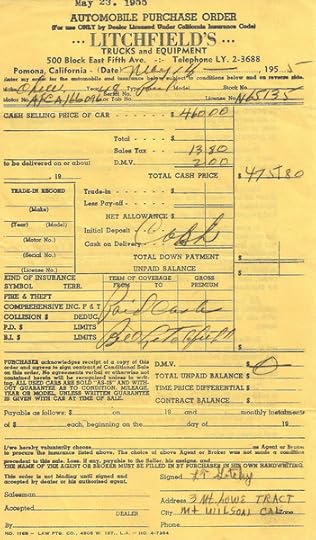 May 23, 1955
AUTOMOBILE PURCHASE ORDER
(For use ONLY by Dealer Licensed Under California Insurance Code)
LITCHFIELD'S
TRUCKS and EQUIPMENT
500 Block East Fifth Ave. -:- Telephone LY. 2-3688
Pomona, California - (Date) May 16 1955
Enter my order for the automobile and insurance below subject to conditions below and on reverse side.
Make Chev. Year 48 Type Model Stock No.
Motor No. or Job No. License No. N65135
CASH SELLING PRICE OF CAR $ 460.00
Total
Sales Tax 13.80
to be delivered on or about D.M.V. 2.00
, 19 TOTAL CASH PRICE $ 475.80
TRADE-IN RECORD
Trade-in $
(Make)
Less Pay-off
(Year) (Model)
NET ALLOWANCE $
(Motor No.)
Initial Deposit
(Serial No.)
Cash on Delivery
(License No.)
TOTAL DOWN PAYMENT
UNPAID BALANCE
KIND OF INSURANCE TERM OF COVERAGE GROSS
SYMBOL TERR. FROM TO PREMIUM
FIRE & THEFT
COMPREHENSIVE INC. F & T
COLLISION $ DEDUC. Paid Cash
P.D. $ LIMITS
B.I. $ LIMITS
PURCHASER acknowledges receipt of a copy of this order and agrees to sign contract of Conditional Sale on this order. No agreements verbal or otherwise not contained herein will be recognized unless in writing. ALL USED CARS ARE SOLD "AS-IS" AND WITHOUT GUARANTEE AS TO CONDITION, MILEAGE, YEAR OR MODEL, UNLESS WRITTEN GUARANTEE IS GIVEN WITH CAR AT TIME OF SALE.
D.M.V. $ 0
TOTAL UNPAID BALANCE $
TIME PRICE DIFFERENTIAL $
CONTRACT BALANCE $
Payable as follows: $ on 19 and monthly instalments
of $ each, beginning on the day of 19
I/we hereby voluntarily choose as Agent or Broker
to procure the insurance listed above. The choice of above Agent or Broker was not made a condition
precedent to this sale. Loss, if any, payable to the Seller, assigns, and
(THE NAME OF THE AGENT OR BROKER MUST BE FILLED IN BY PURCHASER IN HIS OWN HANDWRITING.
This order is not binding until signed and accepted by dealer or dealer's agent.
Signed
Salesman
Address 3 Mt. LOWE TRACT
Accepted DEALER
City MT WILSON CAL
By Phone